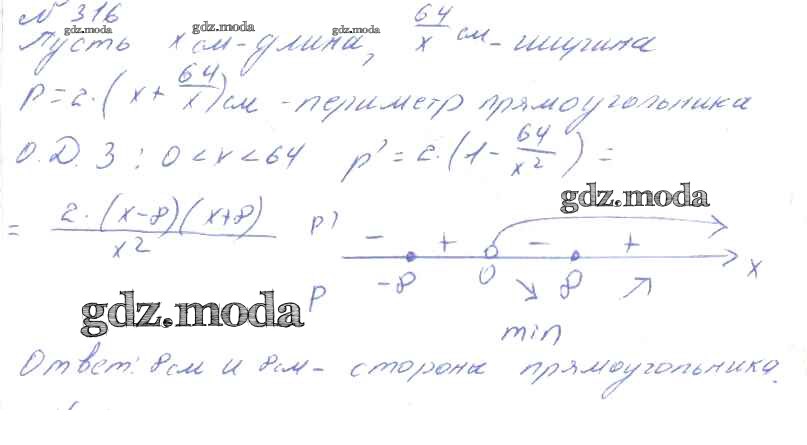 № 316
gdz.moda gdz.moda gdz.moda
Пусть x см-длина, 64/x см-ширина
P=2·(x+64/x)см -периметр прямоугольника
О.Д.З: 0<x<64 p'=2·(1-64/x²)=
gdz.moda
= 2·(x-8)(x+8)/x² p'
- + - +
-8 0 8 x
P ↘ ↗
gdz.moda
min
Ответ: 8см и 8см- сторона прямоугольника.